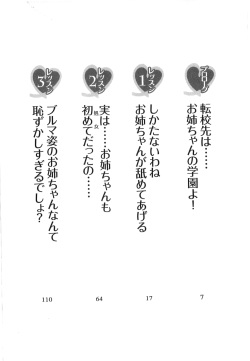 プロローグ
転校先は……
お姉ちゃんの学園よ！
7
レッスン1
しかたないわね
お姉ちゃんが舐めてあげる
17
レッスン2
実は……お姉ちゃんも
初めてだったの……
64
レッスン3
ブルマ姿のお姉ちゃんなんて
恥ずかしすぎるでしょ？
110